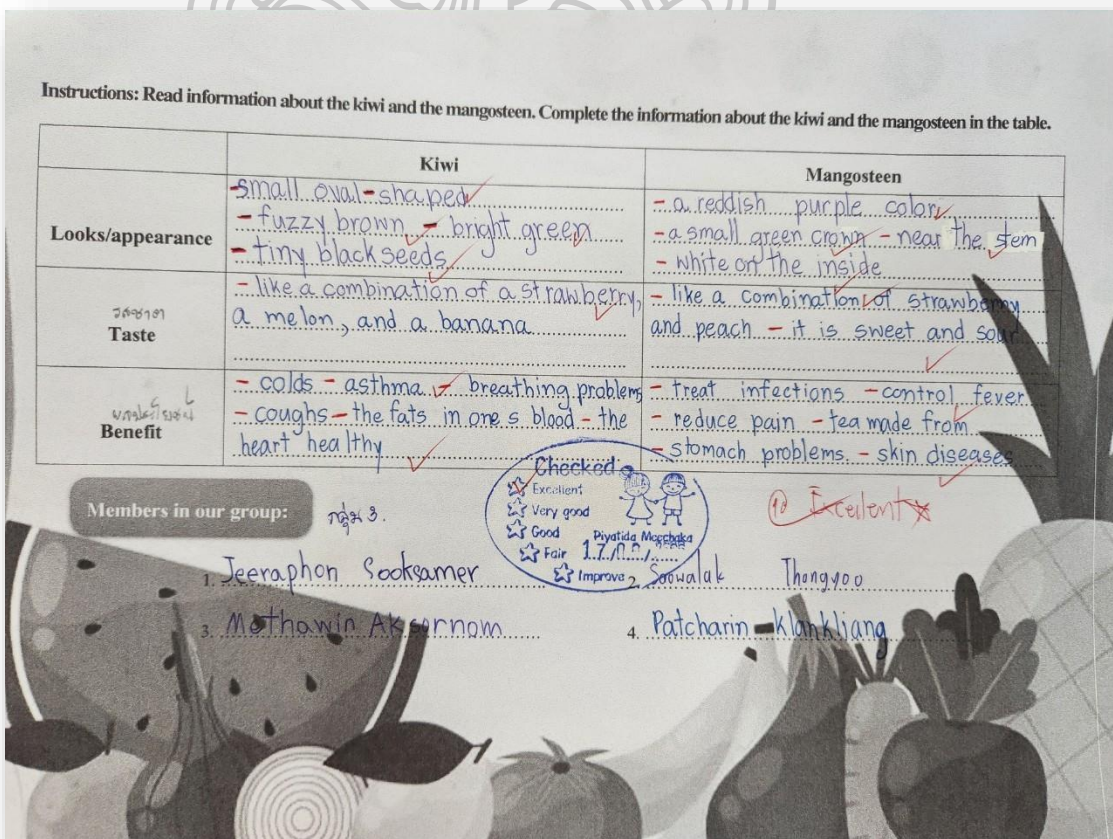 Instructions: Read information about the kiwi and the mangosteen. Complete the information about the kiwi and the mangosteen in the table.
Kiwi
Mangosteen
Looks/appearance
-small oval-shaped
- fuzzy brown - bright green
- tiny black seeds
- a reddish purple color
- a small green crown - near the stem
- white on the inside
รสชาติ
Taste
- like a combination of a strawberry,
a melon, and a banana
- like a combination of strawberry
and peach - it is sweet and sour
Benefit
- colds - asthma - breathing problems
- coughs - the fats in one s blood - the
heart healthy
- treat infections - control fever
- reduce pain - tea made from
- stomach problems - skin diseases
Checked
Excellent
Very good
Good
Fair
Improve
Piyatida Meechaka
10 Excellent
Members in our group:
กลุ่ม 3.
1. Jeeraphon Sooksamer
2. Soowalak Thongyoo
3. Methawin Aksornnom
4. Patcharin Klankliang